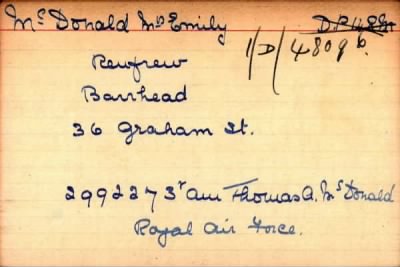 Mc Donald Mrs Emily
1/D/4809 b.
Renfrew
Barrhead
36 Graham St.
299227 3r am Thomas A. Mc Donald
Royal Air Force.